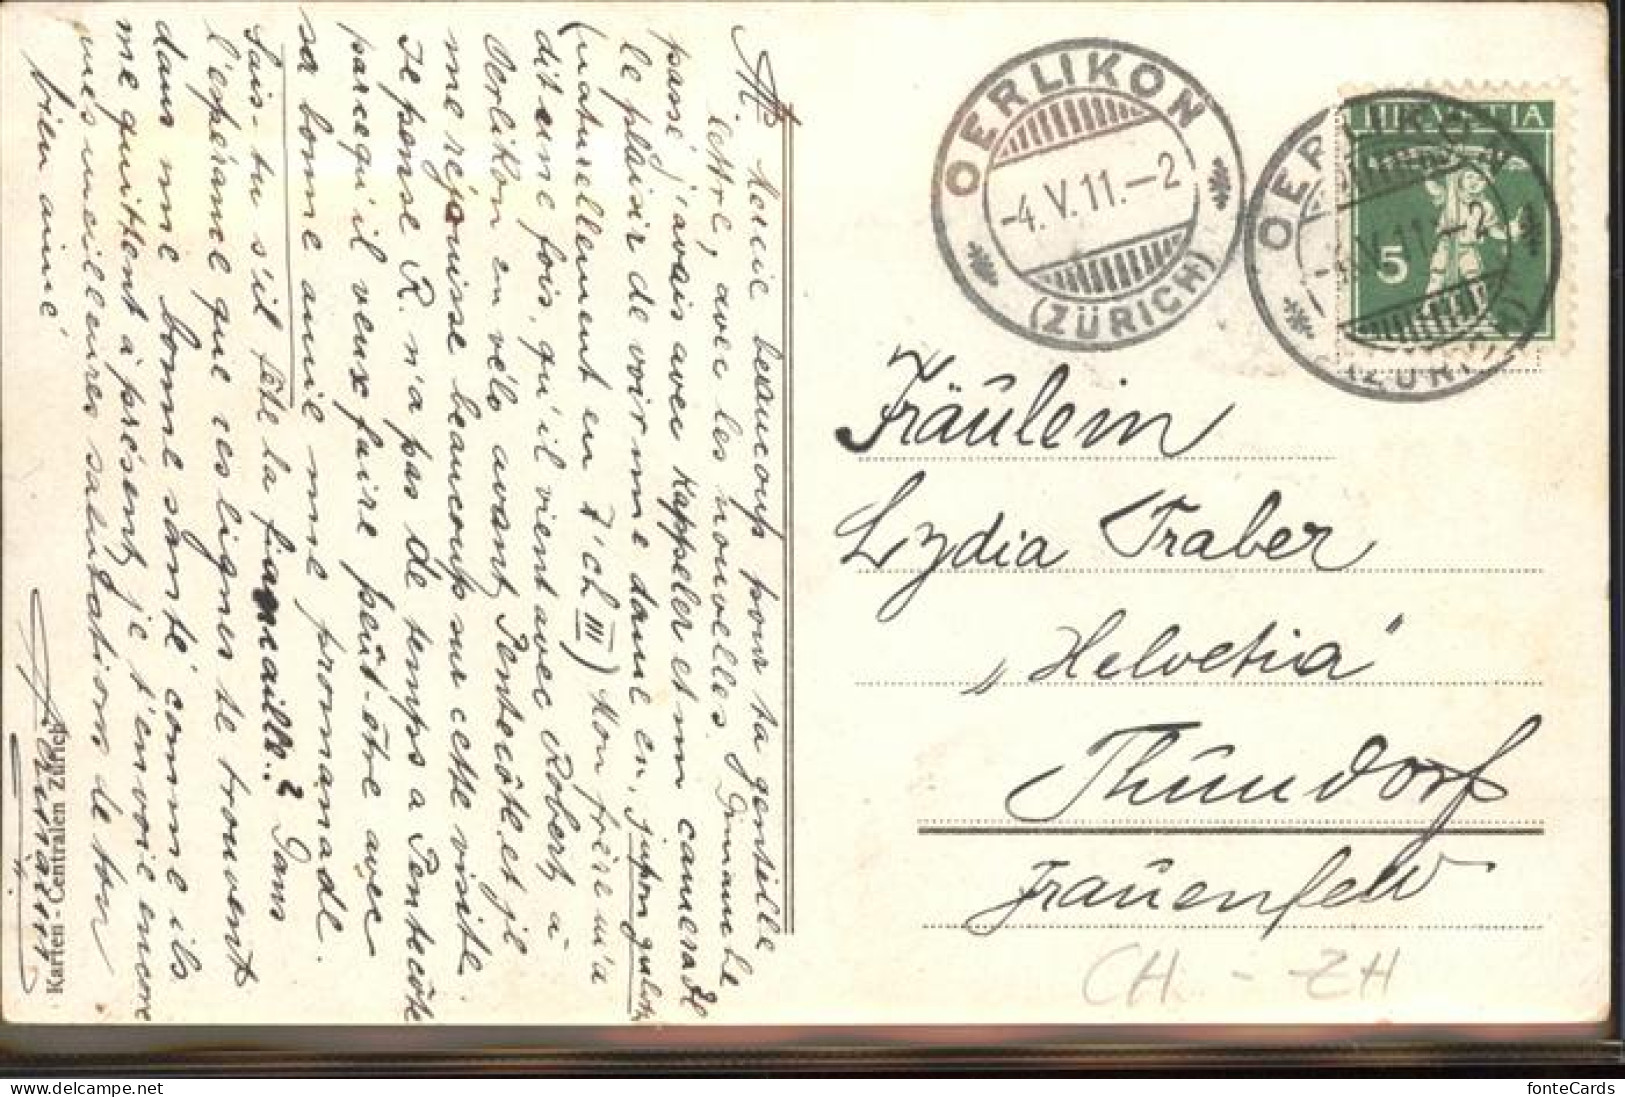 Merci beaucoup pour ta gentille
lettre, avec les nouvelles. Dimanche
passé j'avais avec Kappeler et un camerad
le plaisir de voir une dame en jupon
(naturellement en III) Mon frère m'a
dit une fois, qu'il vient avec Robert, à
Oerlikon en vélo avant Pentecôte, et j'l
me rejouisse beaucoup sur cette visite.
Je pense R. n'a pas de temps a Pentecôte
parcequ'il veux faire peut-être avec
sa bonne amie une promanade.
Sais-tu s'il fête la fiancaille..? Dans
l'espérance que ces lignes te trouvent
dans une bonne santé comme ils
me quittent à présent, je t'envoie encore
mes meilleures salutations de ton
bien aimé
Karten-Centralen Zürich
OERLIKON
-4.V.11.-2
(ZÜRICH)
HELVETIA
5
OERLIKON
V.11.-2
(ZÜRICH)
Fräulein
Lydia Traber
„Helvetia"
Thundorf
Frauenfeld
CH - ZH
fonteCards
www.delcampe.net